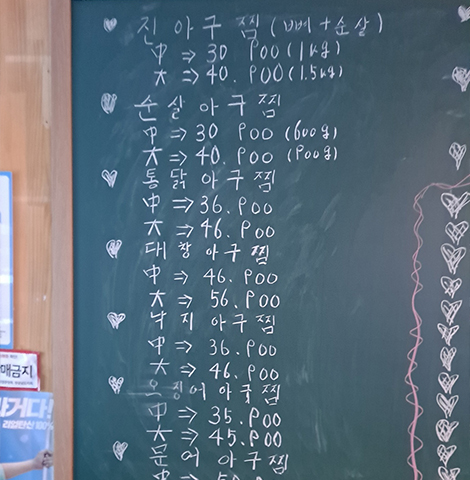 진 아구 찜 (뼈+순살)
中 ⇒ 30 900 (1kg)
大 ⇒ 40. 900 (1.5kg)
순 살 아구 찜
中 ⇒ 30 900 (600g)
大 ⇒ 40. 900 (900g)
통 닭 아구 찜
中 ⇒ 36. 900
大 ⇒ 46. 900
대 창 아구 찜
中 ⇒ 46. 900
大 ⇒ 56. 900
낙 지 아구 찜
中 ⇒ 36. 900
大 ⇒ 46. 900
오징어 아구찜
中 ⇒ 35. 900
大 ⇒ 45. 900
문 어 아구 찜
中 ⇒
매금지
거다!
리얼탄산 100%